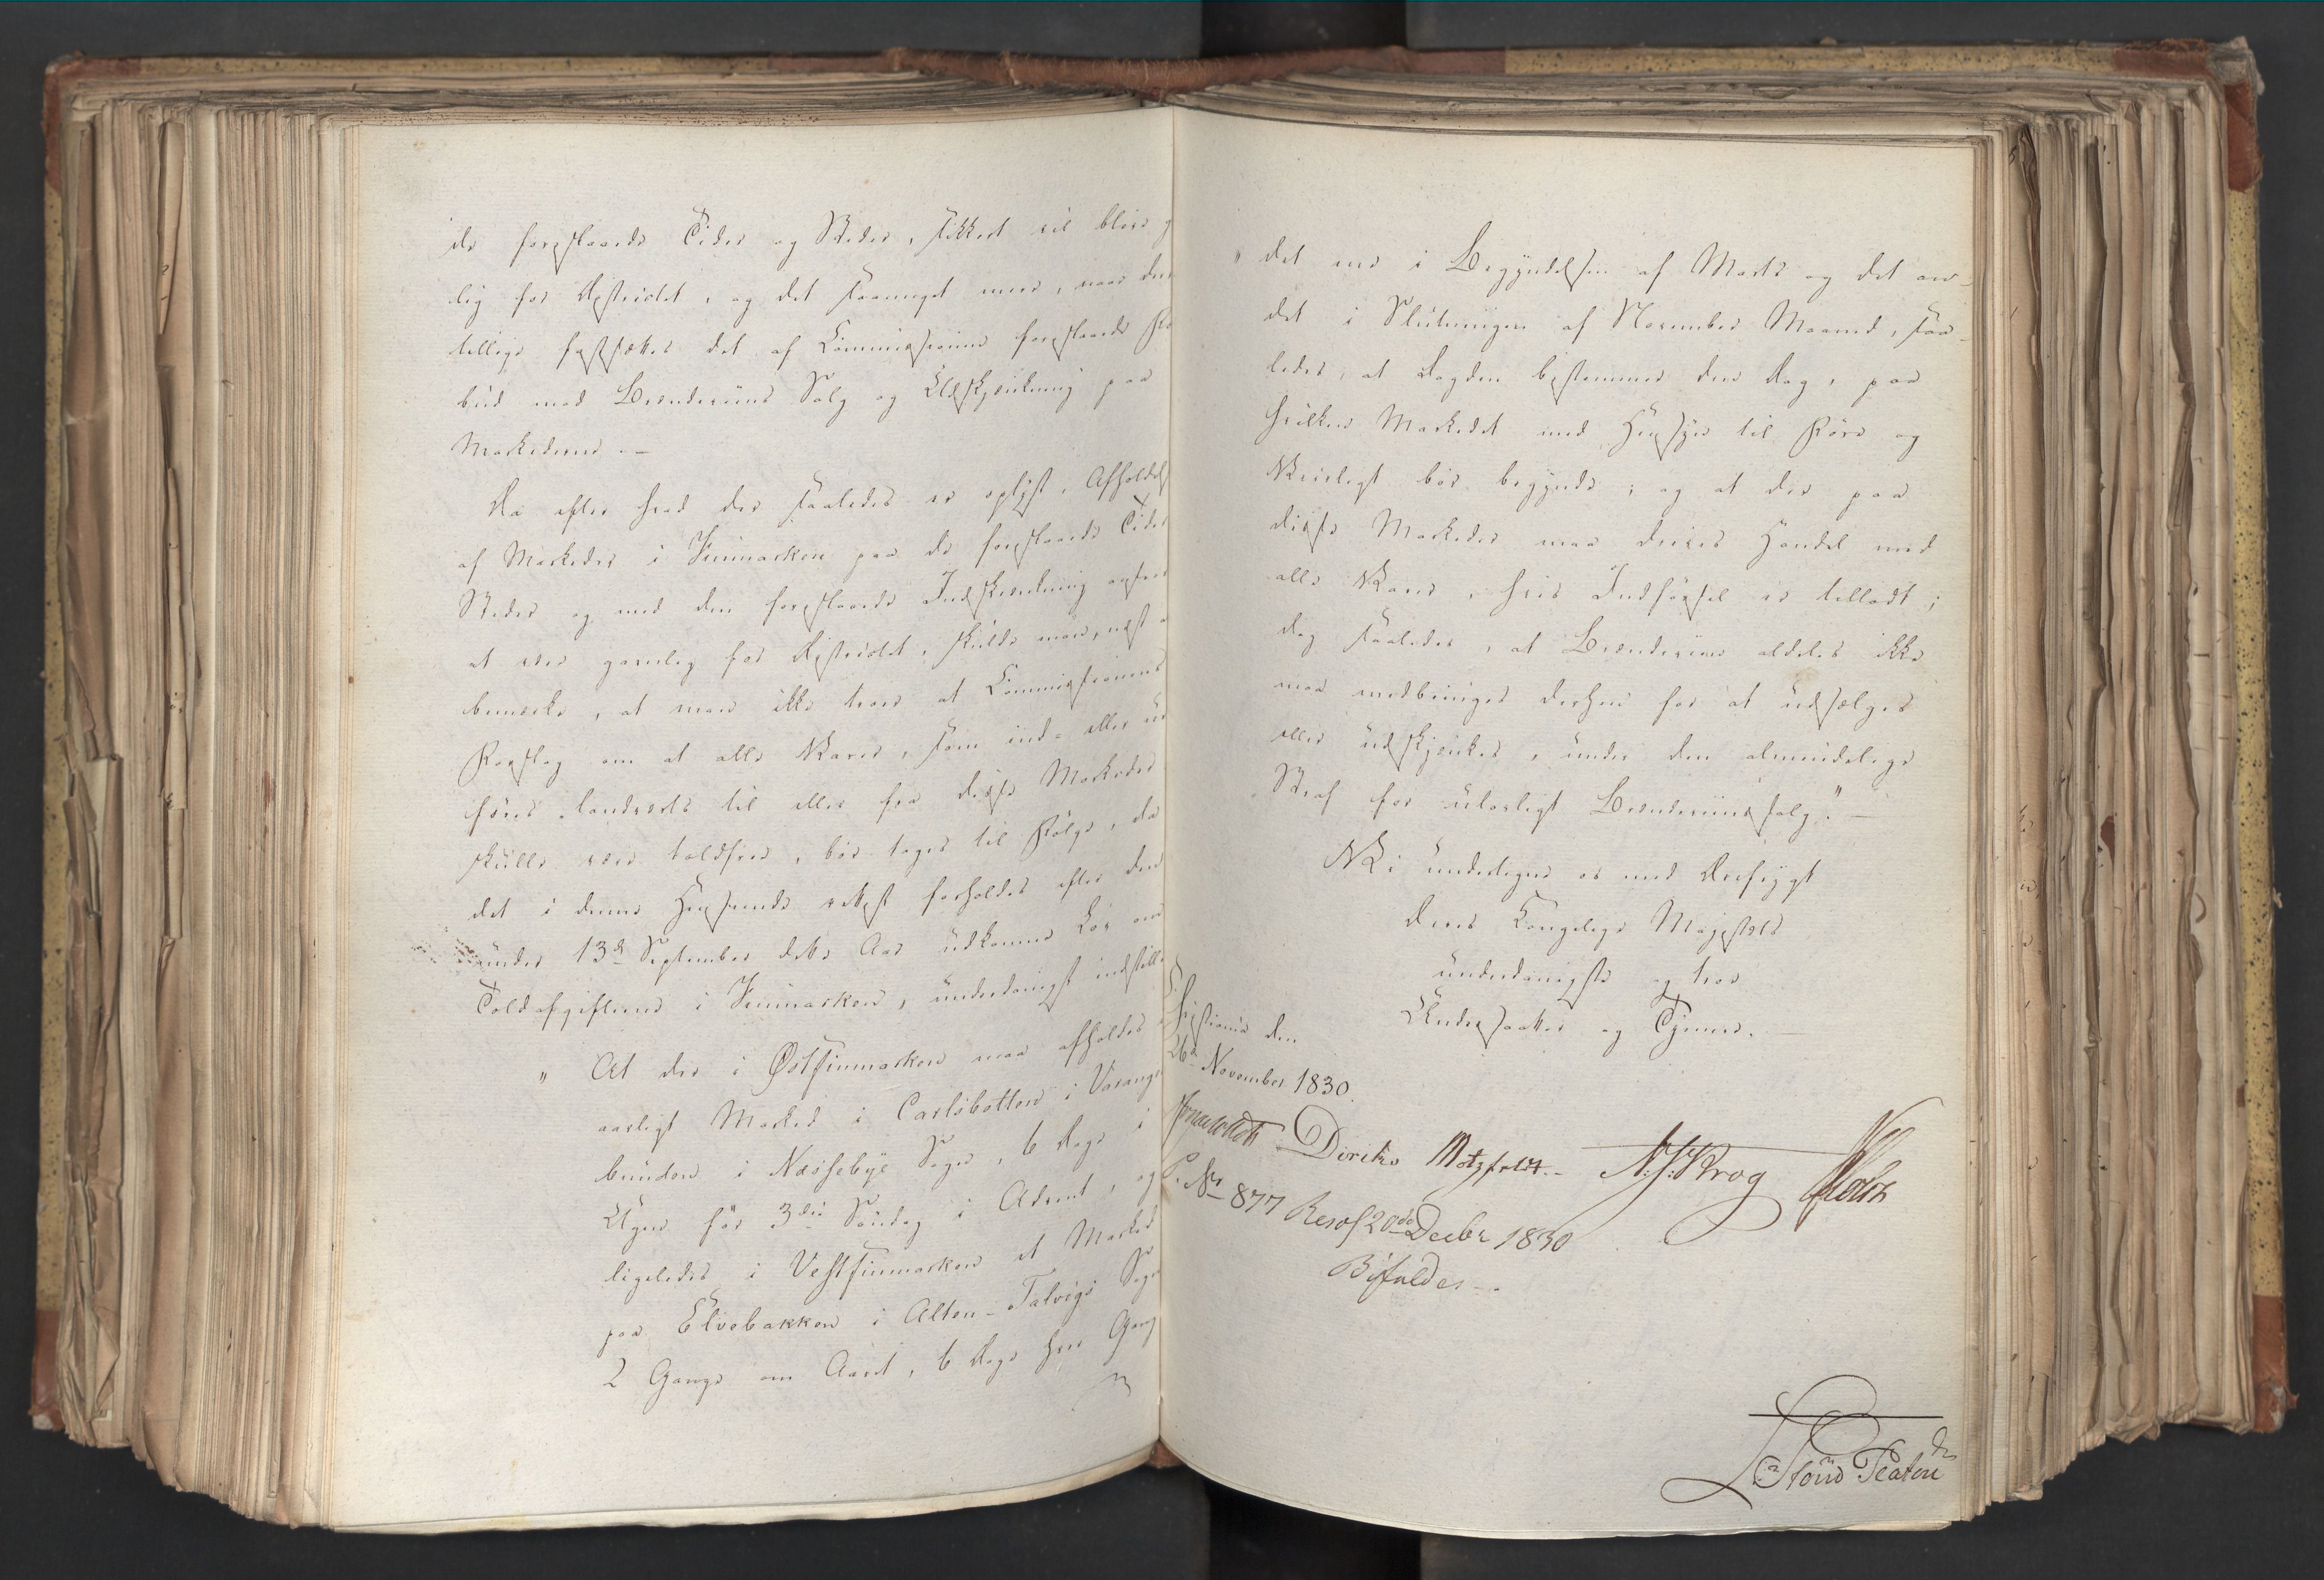 de foreslaaede Tider og Steder, sikkert vil blive g
lig for Distriktet, og det saameget mere, naar der
tillige fastsættes det af Commissionen foreslaaede For
bud mod Brændeviins Salg og Udskjænkning paa
Markederne. –
Da efter hvad der saaledes er oplyst, Afholdels
af Markeder i Finmarken paa de foreslaaede Tider
Steder og med den foreslaaede Indskrænkning ansees
at være gavnlig for Distriktet, skulde man, næst a
bemærke, at man ikke troer at Commissionens
Forslag om at alle Varer, som ind- eller ud
føres landværts til eller fra disse Markeder
skulle være toldfrie, bør tages til Følge, da
det i denne Henseende rettest forholdes efter den
under 13de September dette Aar udkomne Lov om
Toldafgifterne i Finmarken, underdanigst indstille
„ At der i Østfinmarken maa afholdes
aarligt Marked i Carlsbotten i Varanger
bunden i Næssebye Sogn, 6 Dage i
Ugen før 3die Søndag i Advent, og
ligeledes i Vestfinmarken et Marked
paa Elvebakken i Alten-Talvigs Sogn
2 Gange om Aaret, 6 Dage hver Gang
„ det ene i Begyndelsen af Marts og det an-
det i Slutningen af November Maaned, saa-
ledes, at Fogden bestemmer den Dag, paa
hvilken Markedet med Hensyn til Føre og
Veirligt bør begynde; og at der paa
disse Markeder maa drives Handel med
alle Varer, hvis Indførsel er tilladt;
dog saaledes, at Brændeviin aldeles ikke
maa medbringes derhen for at udsælges
eller udskjænkes, under den almindelige
Straf for ulovligt Brændeviinssalg." –
Vi undertegne os med Dievsygt
Deres Kongelige Majestæts
underdanigste og troe
Undersaatter og Tjenere.
Christiania den
26de November 1830.
Diriks Motzfeldt. – N. J. Krog
P. No 877 Resol 20de Decbr 1830
Bifaldes –.